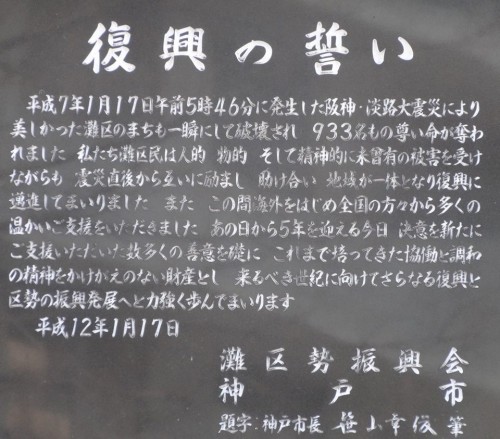 復興の誓い
平成7年1月17日午前5時46分に発生した阪神・淡路大震災により
美しかった灘区のまちも一瞬にして破壊され 933名もの尊い命が奪わ
れました 私たち灘区民は人的 物的 そして精神的に未曽有の被害を受け
ながらも 震災直後から互いに励まし 助け合い 地域が一体となり復興に
邁進してまいりました また この間海外をはじめ全国の方々から多くの
温かいご支援をいただきました あの日から5年を迎える今日 決意を新たに
ご支援いただいた数多くの善意を礎に これまで培ってきた協働と調和
の精神をかけがえのない財産とし 来るべき世紀に向けてさらなる復興と
区勢の振興発展へと力強く歩んでまいります
平成12年1月17日
灘区勢振興会
神戸市
題字:神戸市長 笹山幸俊 筆